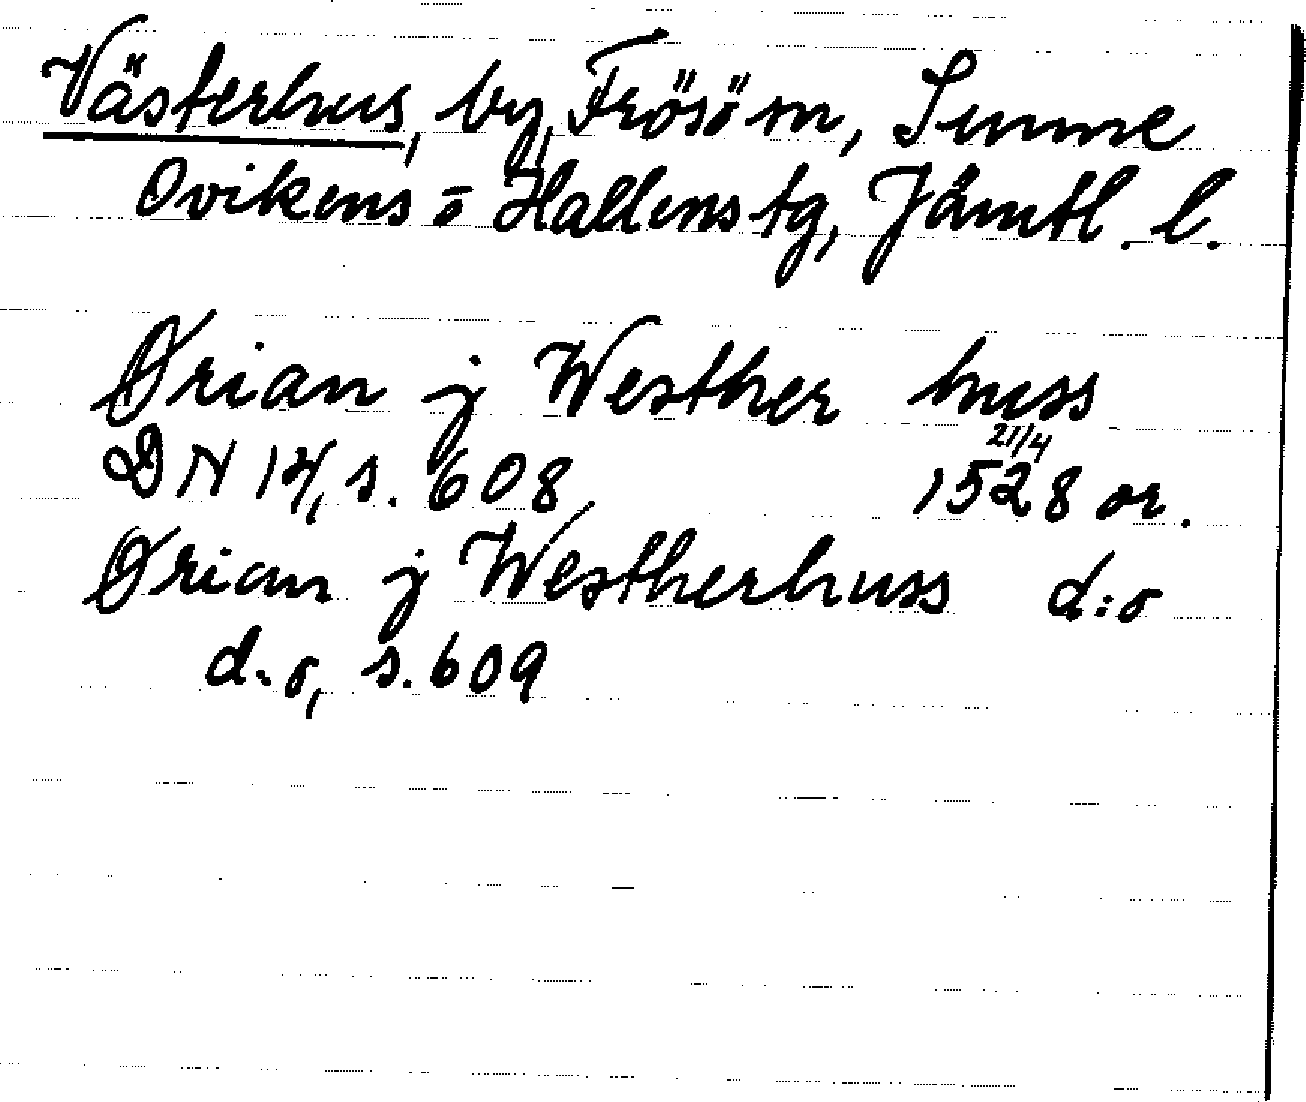 Västerhus, by, Frösö sn, Sunne
Ovikens o Hallens tg, Jämtl. l.
Ørian j Westher huss
DN 14, s. 608 21/4 1528 or.
Ørian j Westherhuss d:o
d:o, s. 609